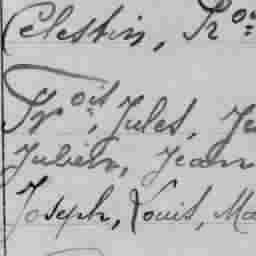 Celestin, Fr^ois
Fr^ois, Jules, Ju
Julien, Jean
Joseph, Louis, Ma